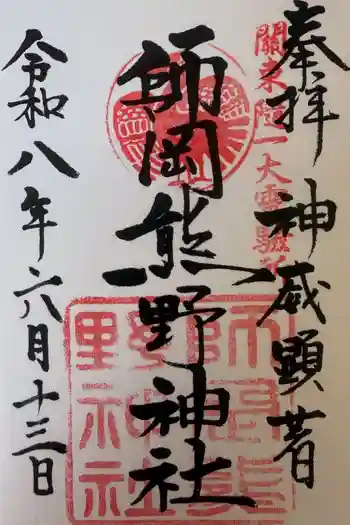 奉拝
關東随一大霊験所
神威顕著
師岡熊野神社
師岡熊野神社
令和八年六月十三日